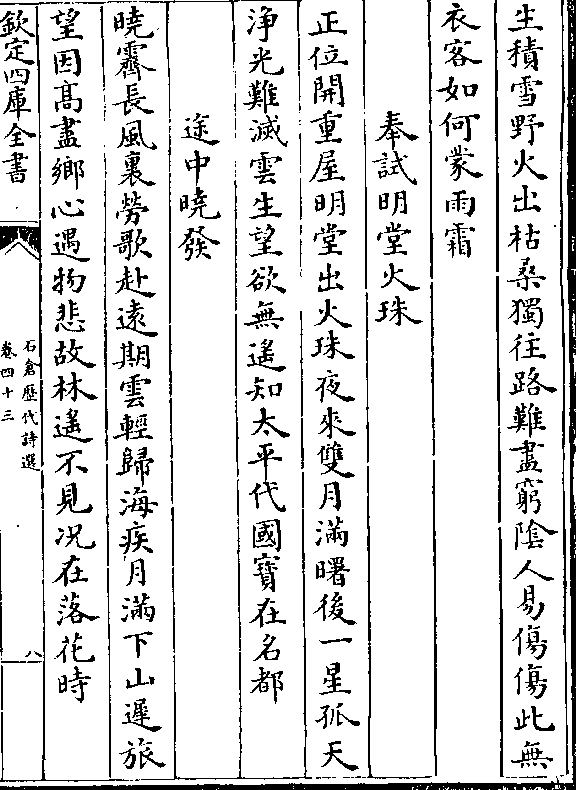 生積雪野火出枯桑獨往路難盡窮陰人易傷傷此無
衣客如何蒙雨霜
奉試明堂火珠
正位開重屋明堂出火珠夜來雙月滿曙後一星孤天
浄光難滅雲生望欲無遙知太平代國寳在名都
途中曉發
曉霽長風裏勞歌赴逺期雲輕歸海疾月滿下山遲旅
望因髙盡鄉心遇物悲故林遙不見况在落花時
欽定四庫全書
石倉歷代詩選
卷四十三
八